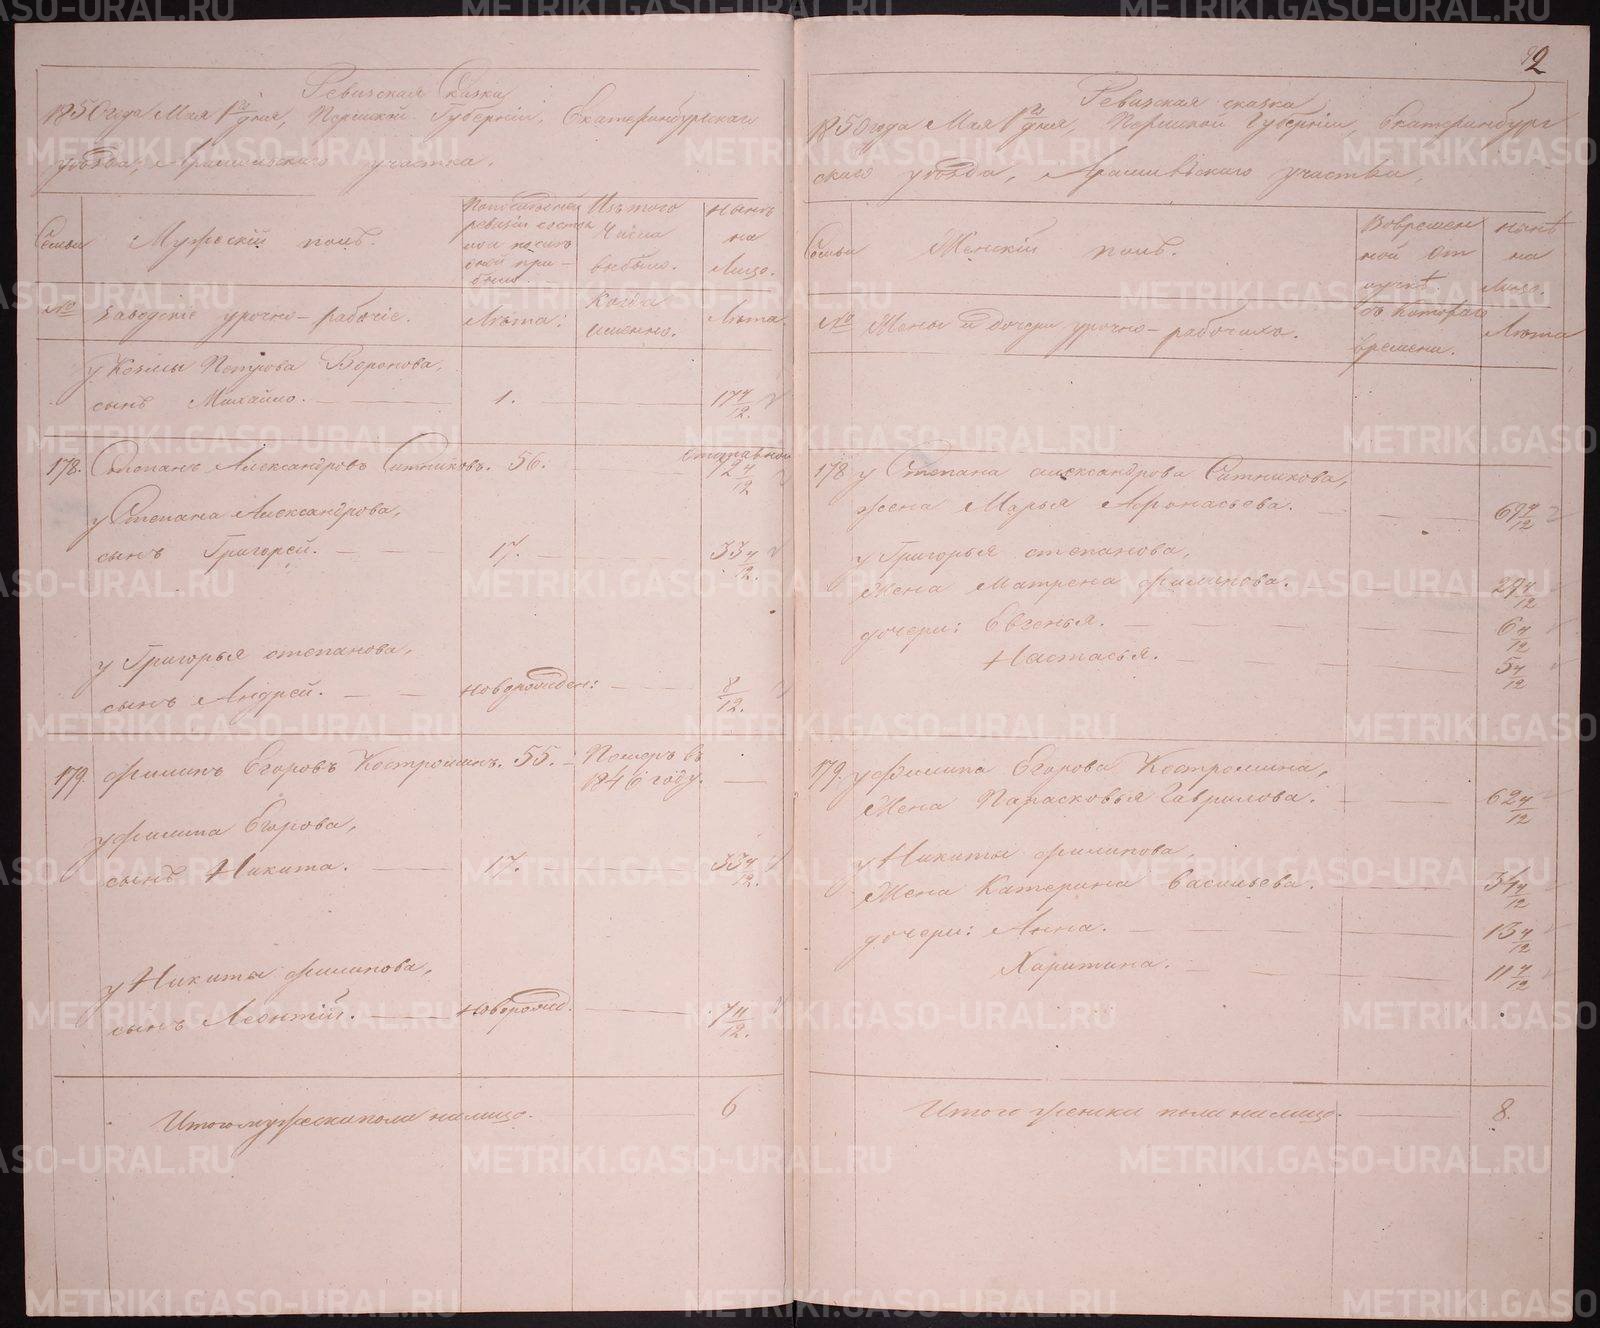 Ревизская сказка
1850 года Мая 1го дня, Пермской Губернiи, Екатеринбургскаго
уѣзда, Арамильскаго участка.
Семьи
Мужескiй полъ.
По последней ревизiи состояло и после оной прибыло
Изъ того числа выбыло.
Нынѣ на Лицо.
№
Заводскiе урочно-рабочiе.
Лѣта:
Когда именно.
Лѣта.
у Козмы Петрова Воронова,
сынъ Михайло. 1. 17 4/12
178. Степанъ Александровъ Ситниковъ. 56. 72 4/12
у Степана Александрова,
сынъ Григорей. 17. 33 4/12.
у Григорья степанова,
сынъ Андрей. новорожден: 8/12.
179. Филипъ Егоровъ Костроминъ. 55. Померъ въ
1846 году.
у Филипа Егорова,
сынъ Никита. 17. 33 4/12.
у Никиты Филипова,
сынъ Леонтiй. новорожд. 7 4/12.
Итого мужеска пола на лицо. 6
92
Ревизская сказка
1850 года Мая 1го дня, Пермской Губернiи, Екатеринбург
скаго уѣзда, Арамильскаго участка,
Семьи
Женскiй полъ.
Во временной отлучкѣ.
нынѣ на Лицо.
№
Жены и дочери урочно-рабочихъ.
съ Котораго времени.
Лѣта
178 у Степана александрова Ситникова,
жена Марья Афонасьева. 67 4/12
у Григорья степанова,
Жена Матрена Филипова. 29 4/12
дочери: Евгенья. 6 4/12
Настасья. 5 4/12
179. у Филипа Егорова Костромина,
Жена Парасковья Гаврилова. 62 4/12
у Никиты Филипова,
Жена Катерина Васильева. 34 4/12
дочери: Анна. 13 4/12
Харитина. 11 4/12
Итого женска пола на лицо. 8.
METRIKI.GASO-URAL.RU